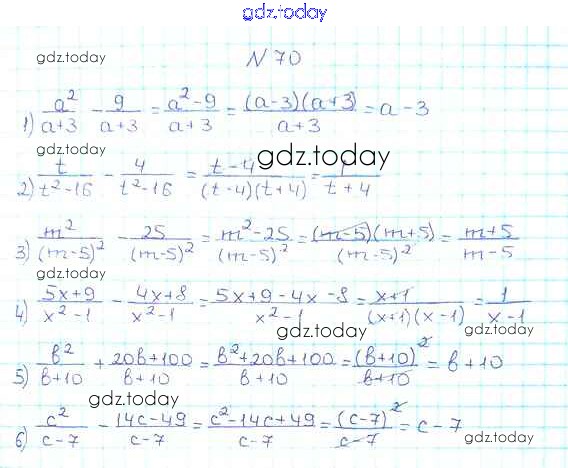 gdz.today
gdz.today
N 70
1) a²/(a+3) - 9/(a+3) = (a²-9)/(a+3) = (a-3)(a+3)/(a+3) = a-3
gdz.today
gdz.today
2) t/(t²-16) - 4/(t²-16) = (t-4)/((t-4)(t+4)) = 1/(t+4)
3) m²/(m-5)² - 25/(m-5)² = (m²-25)/(m-5)² = (m-5)(m+5)/(m-5)² = (m+5)/(m-5)
4) (5x+9)/(x²-1) - (4x+8)/(x²-1) = (5x+9-4x-8)/(x²-1) = (x+1)/((x+1)(x-1)) = 1/(x-1)
gdz.today
5) b²/(b+10) + (20b+100)/(b+10) = (b²+20b+100)/(b+10) = (b+10)²/(b+10) = b+10
gdz.today
6) c²/(c-7) - (14c-49)/(c-7) = (c²-14c+49)/(c-7) = (c-7)²/(c-7) = c-7
gdz.today